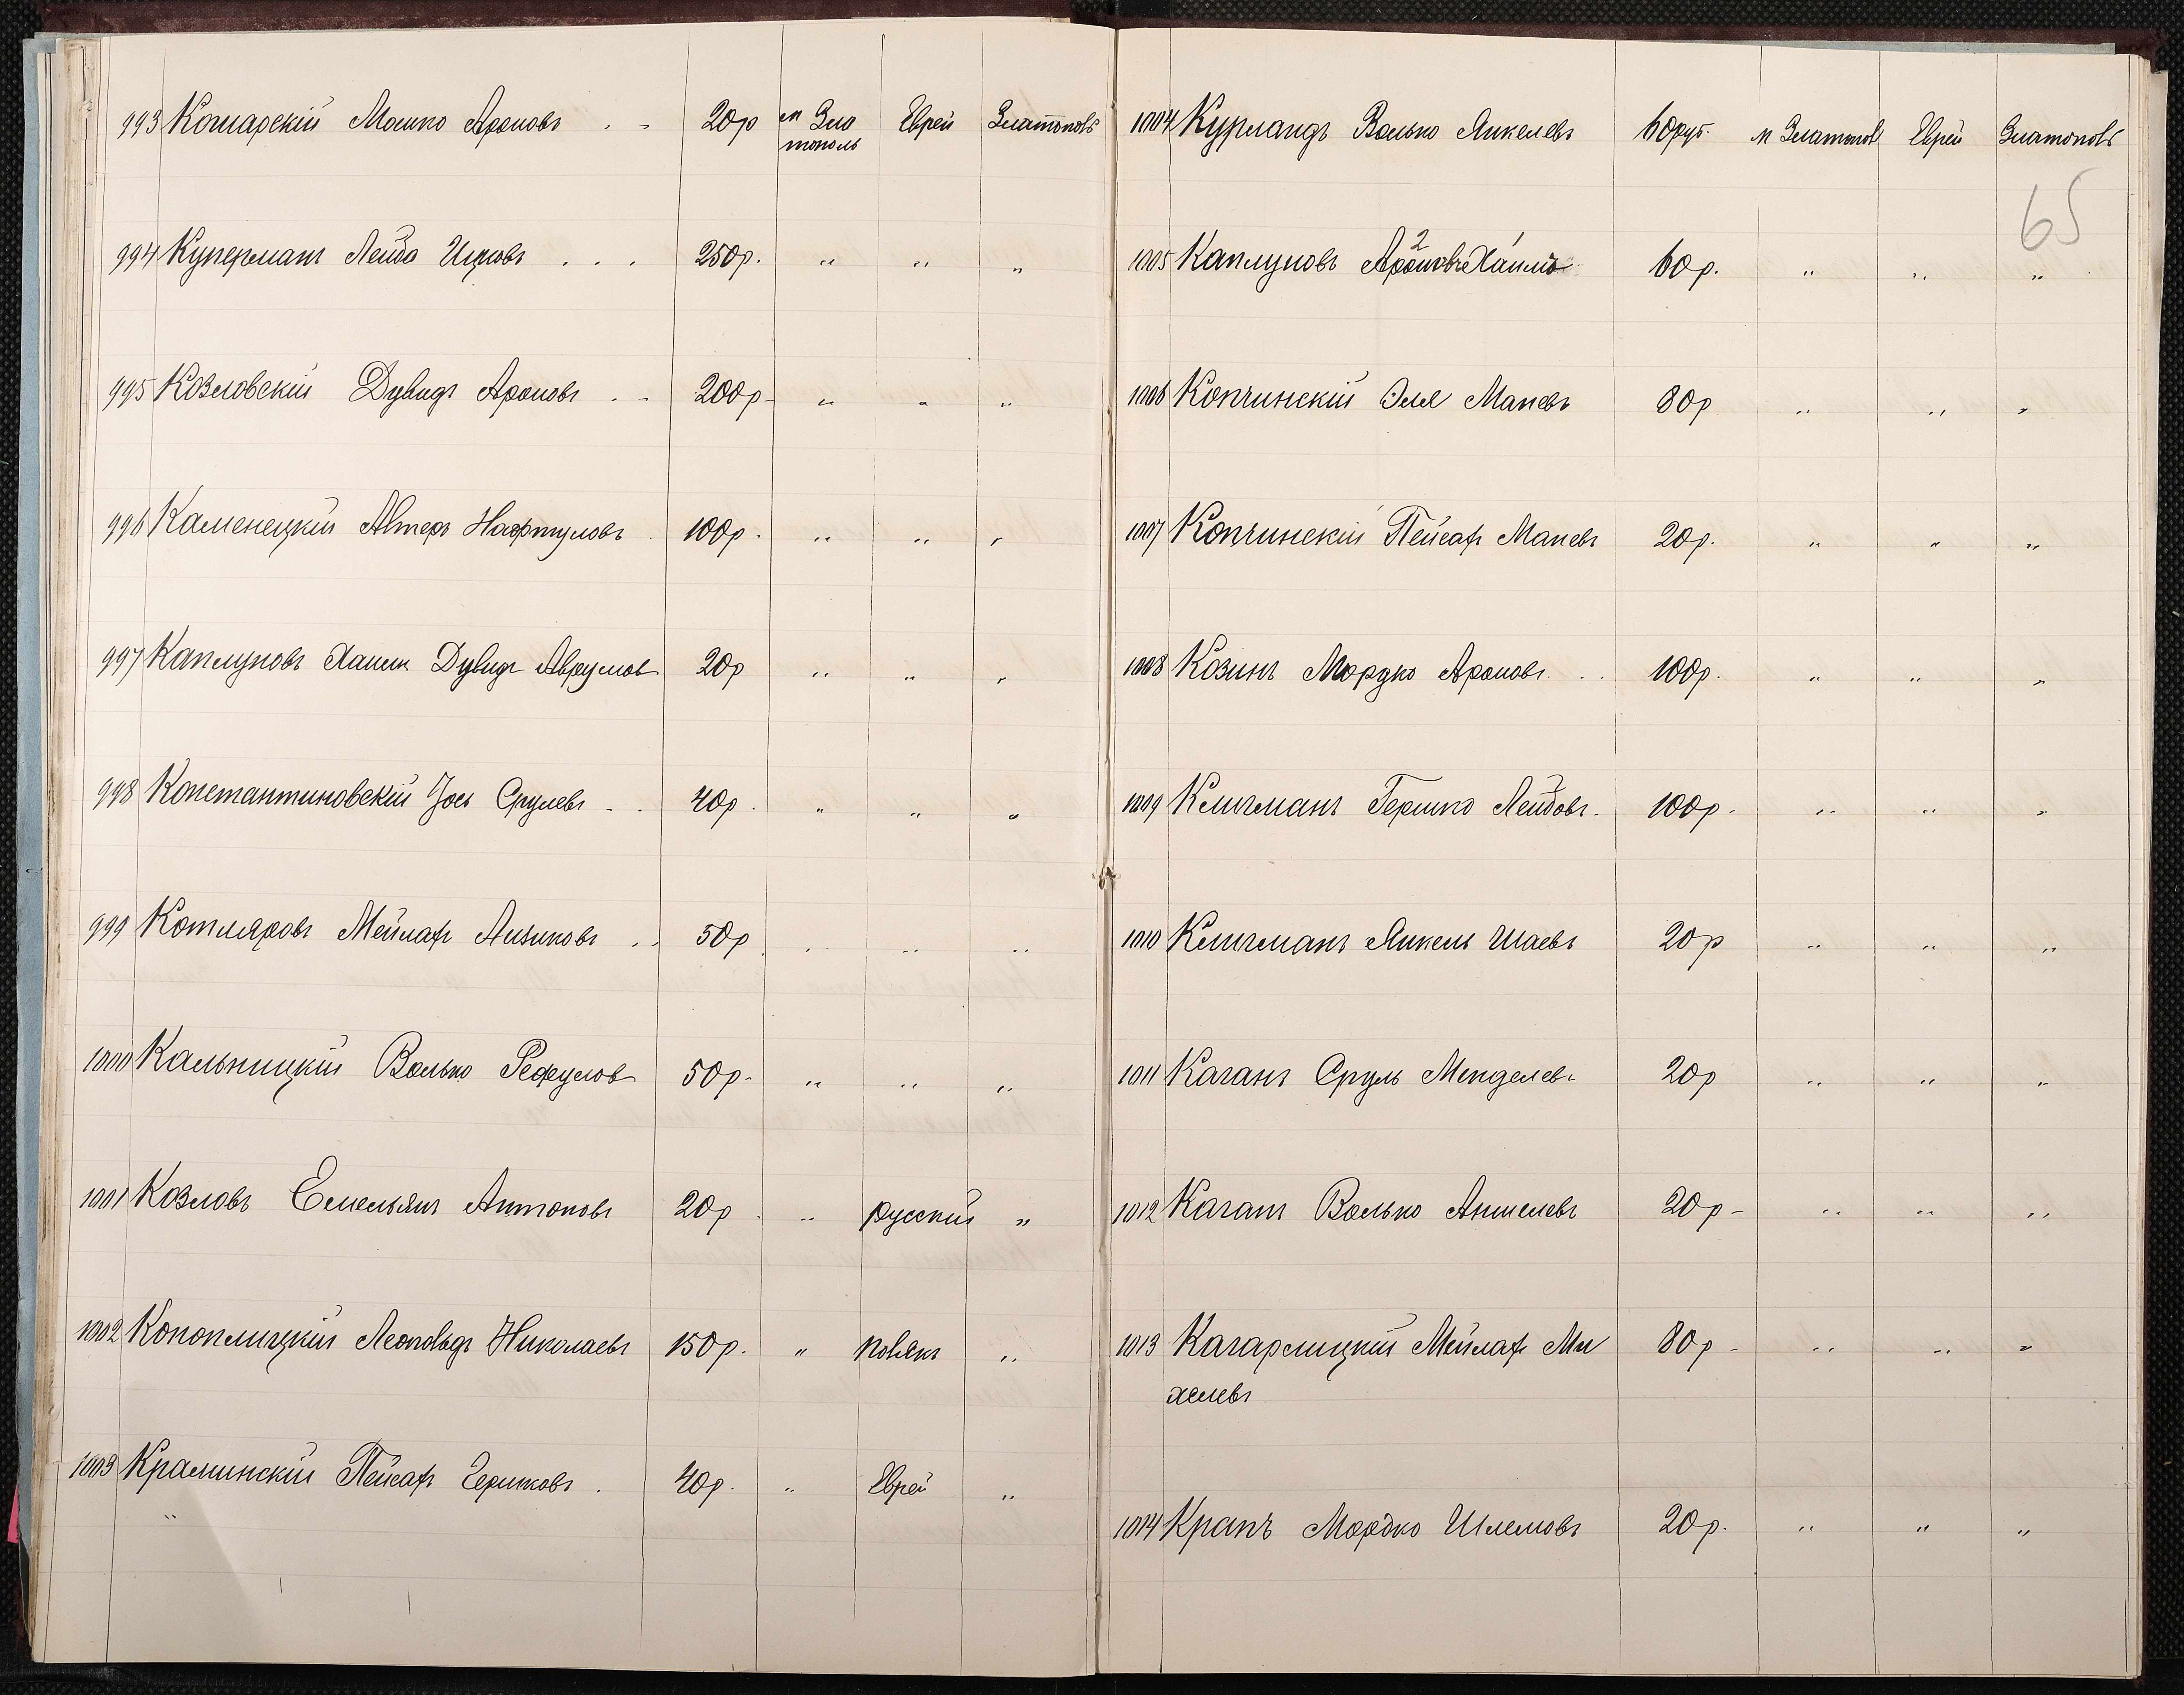 993 Комарскій Мошко Ароновъ . . 20р м Зло Еврей Златополь
тополь
994 Куперманъ Лейба Ицковъ . . . 250р. " " "
995 Козловскій Дувидъ Ароновъ . . 200р " " "
996 Каменецкій Алтеръ Нафтуловъ . 100р. " " "
997 Каплуновъ Хаимъ Дувидъ Аврумов 20р " " "
998 Константиновскій Іось Срулевъ . . 40р. " " "
999 Котляровъ Мейлахъ Аизиковъ . . 50р. " " "
1000 Кальницкій Волько Рефулов 50р. " " "
1001 Козловъ Емельянъ Антоновъ 20р. " русскій "
1002 Конопницкій Леопольдъ Николаевъ 150р. " полякъ "
1003 Краминскій Пейсахъ Гершковъ . 40р. " Еврей "
"
1004 Курландъ Волько Янкелевъ 60руб. м Златополь Еврей Златополь
65
2 1
1005 Каплуновъ Ароновъ Хаимъ 60р. " " "
1006 Копчинскій Эля Маневъ 80р " " "
1007 Копчинскій Пейсахъ Маневъ 20р. " " "
1008 Козинъ Мордко Ароновъ . . 100р. " " "
1009 Клигманъ Гершко Лейбовъ. 100р. " " "
1010 Клигманъ Янкель Шаевъ 20р " " "
1011 Каганъ Сруль Менделевъ 20р " " "
1012 Каганъ Волько Аншелевъ 20р " " "
1013 Кагарлицкій Мейлахъ Ми 80р " " "
хелевъ
1014 Крапъ Мордко Шлемовъ 20р. " " "